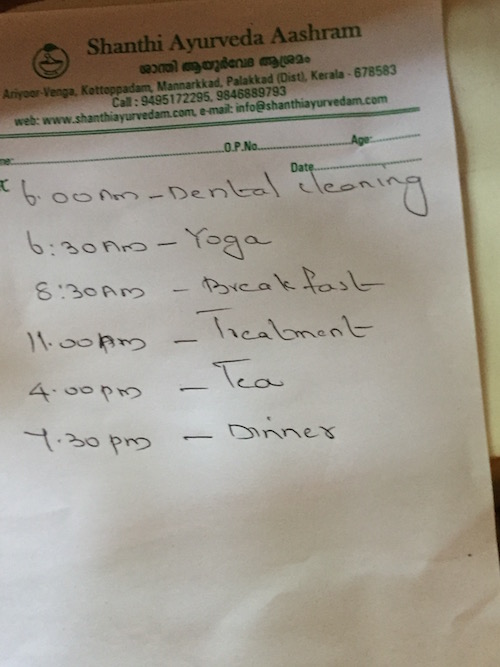 Shanthi Ayurveda Aashram
ശാന്തി ആയുർവേദ ആശ്രമം
Ariyoor-Venga, Kottoppadam, Mannarkkad, Palakkad (Dist), Kerala - 678583
Call : 9495172295, 9846889793
web: www.shanthiayurvedam.com, e-mail: info@shanthiayurvedam.com
me: O.P.No. Age:
Date
6.00Am - Dental cleaning
6:30Am - Yoga
8:30Am - Breakfast
11.00Am - Treatment
4.00pm - Tea
7.30pm - Dinner